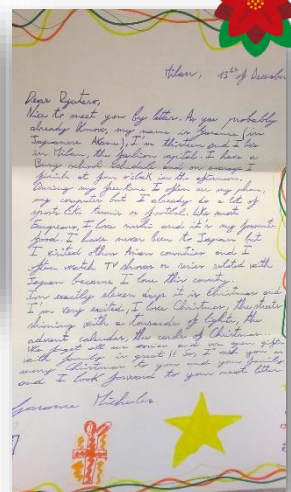 Milan, 13th of December
Dear Ryutaro,
Nice to meet you by letter. As you probably
already know, my name is Garance (in
Japanese
), I'm thirteen and I live
in Milan, the fashion capital. I have a
busy school schedule and on average I
finish at four o'clock in the afternoon.
During my free time I often use my phone,
my computer but I already do a lot of
sports like tennis or football. Like most
I love sushi and it's my favourite
food. I have never been to Japan but
I visited other Asian countries and I
often watch TV shows or series related with
Japan because I love this country.
In exactly eleven days it is Christmas and
I'm very excited, I love Christmas, the streets
shining with a thousands of lights, the
advent calendar, the carols of Christmas.
We
and we open gifts
with family is great!! So, I wish you a
merry Christmas to you and your family
and I look forward to your next letter
Garance